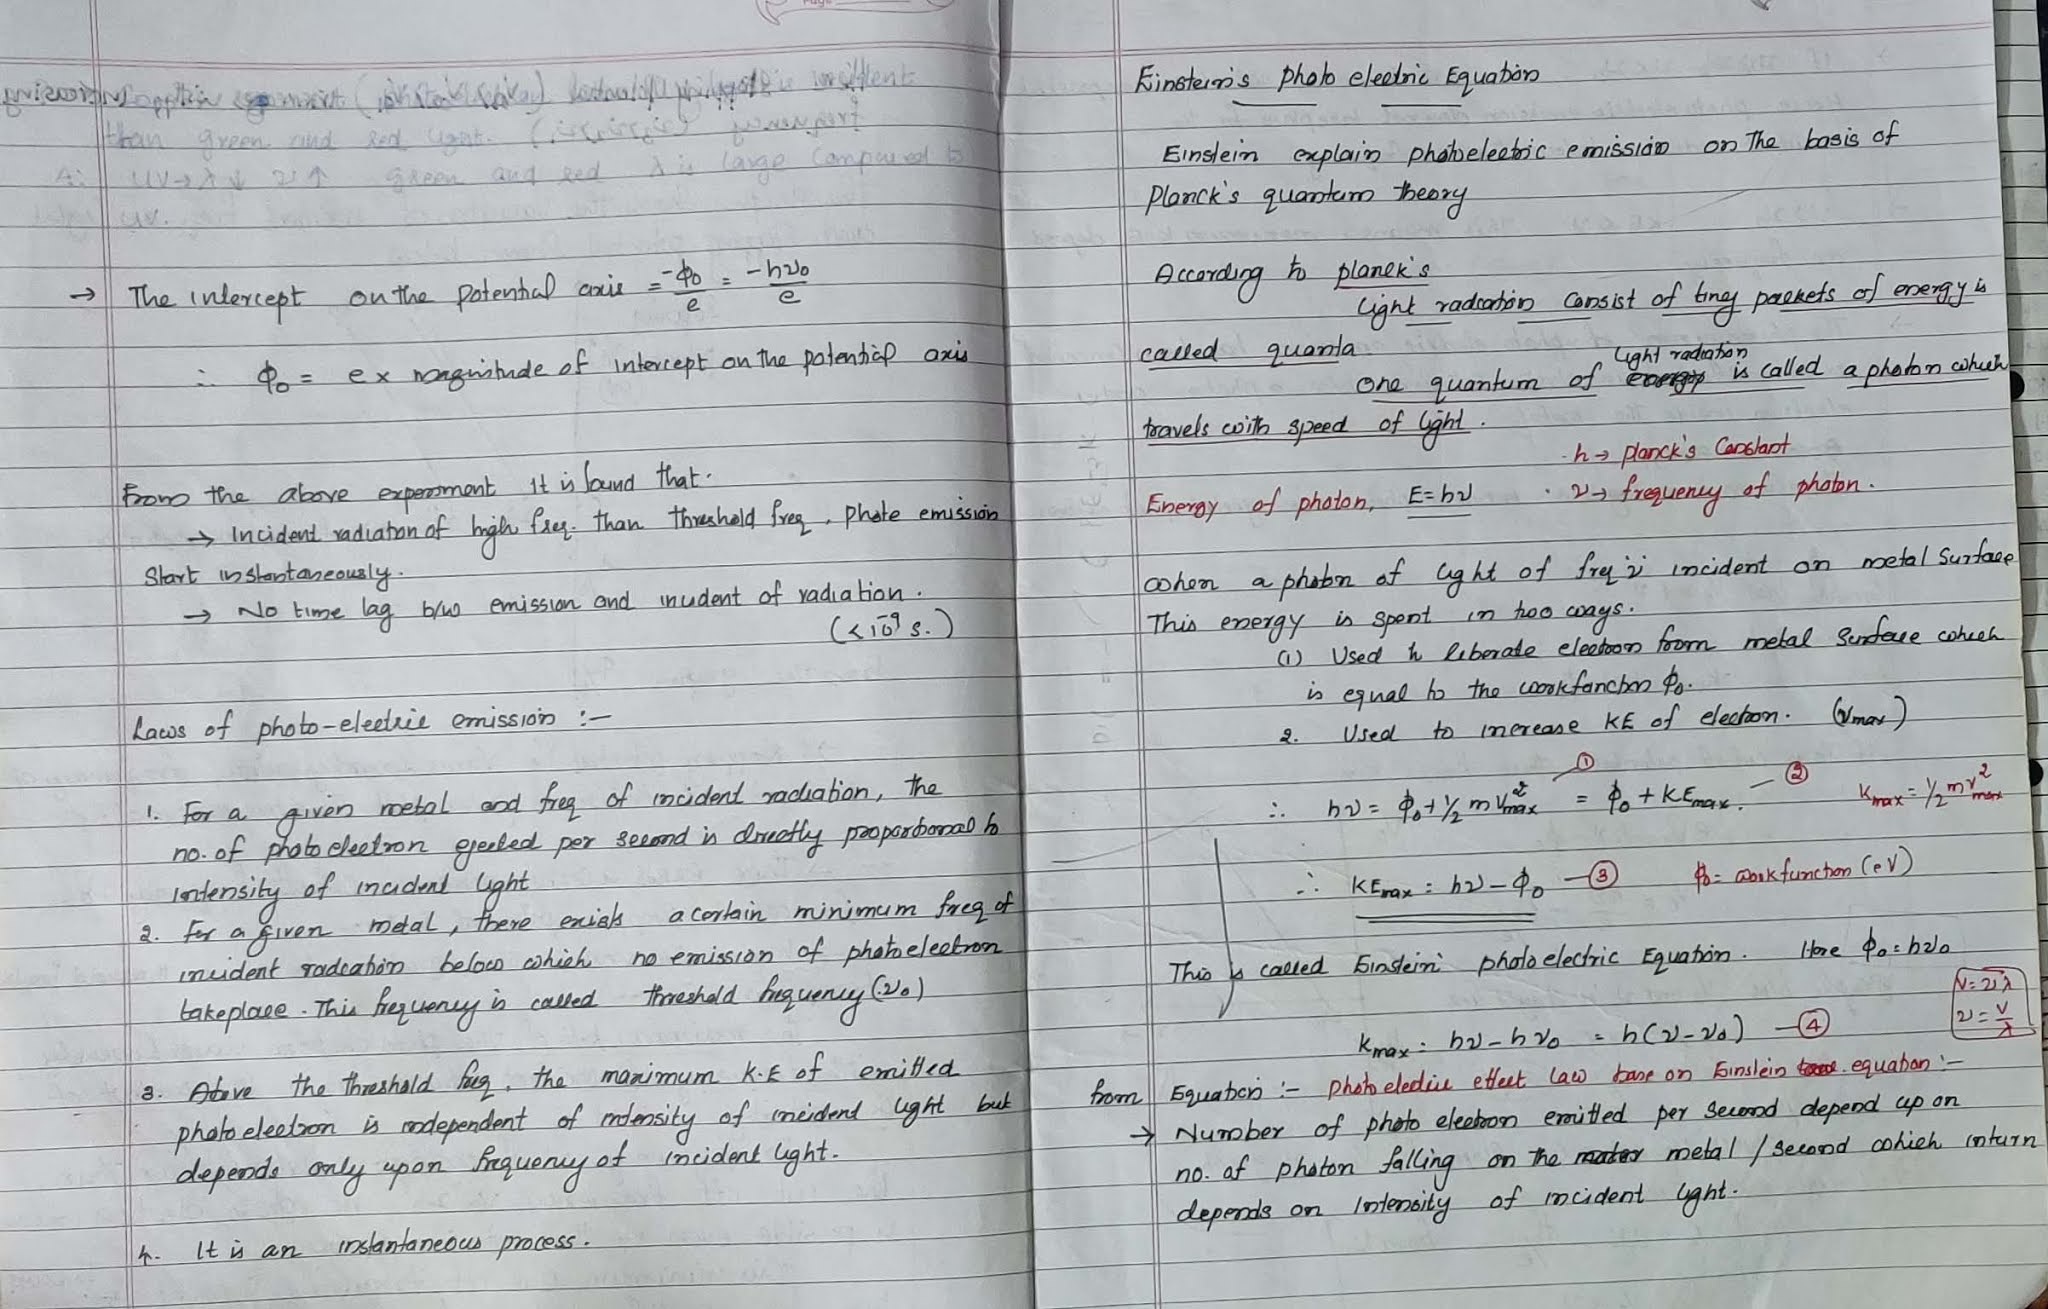 than green and red light.
A: UV→ λ↓ ν↑ green and red λ is large compared to
UV.
→ The intercept on the potential axis = -ϕ₀/e = -hν₀/e
∴ ϕ₀ = e x magnitude of intercept on the potential axis
From the above experiment it is found that.
→ Incident radiation of high freq. than threshold freq, photo emission
start instantaneously.
→ No time lag b/w emission and incident of radiation.
(<10⁻⁹ s.)
Laws of photo-electric emission :-
1. For a given metal and freq of incident radiation, the
no. of photo electron ejected per second is directly proportional to
intensity of incident light
2. For a given metal, there exists a certain minimum freq of
incident radiation below which no emission of photoelectron
takeplace. This frequency is called threshold frequency (ν₀)
3. Above the threshold freq, the maximum K.E of emitted
photo electron is independent of intensity of incident light but
depends only upon frequency of incident light.
4. It is an instantaneous process.
Einstein's photo electric Equation
Einstein explain photoelectric emission on the basis of
Planck's quantum theory
According to planck's
Light radiation consist of tiny packets of energy is
called quanta
One quantum of light radiation is called a photon which
travels with speed of light.
h → planck's constant
Energy of photon, E = hν . ν → frequency of photon.
when a photon of light of freq 'ν' incident on metal surface
This energy is spent in two ways.
(1) Used to liberate electron from metal surface which
is equal to the workfunction ϕ₀.
2. Used to increase KE of electron. (Vmax)
∴ hν = ϕ₀ + ½ m V²max —① = ϕ₀ + KEmax. —② Kmax = ½ m v²max
∴ KEmax = hν – ϕ₀ —③ ϕ₀ = workfunction (eV)
This is called Einstein photo electric Equation. Here ϕ₀ = hν₀
V = νλ
ν = V/λ
Kmax = hν – hν₀ = h(ν – ν₀) —④
from Equation :- photo electric effect law base on Einstein equation :-
→ Number of photo electron emitted per second depend up on
no. of photon falling on the metal / second which inturn
depends on intensity of incident light.